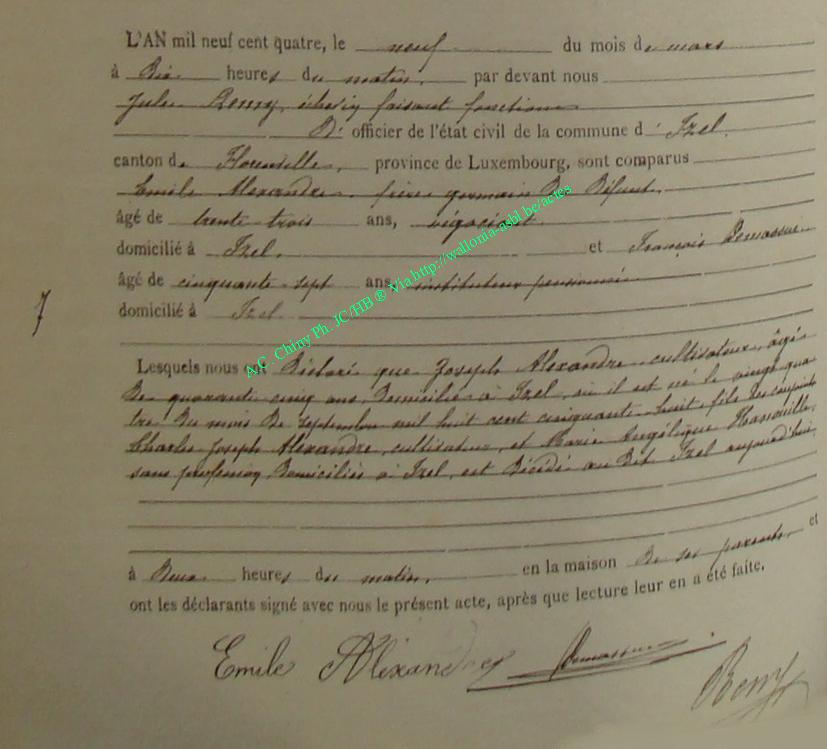 L'AN mil neuf cent quatre, le neuf du mois de mars
à Dix heures du matin, par devant nous
Jules Remy, échevin faisant fonctions
D' officier de l'état civil de la commune d' Izel,
canton de Florenville, province de Luxembourg, sont comparus
Emile Alexandre frère germain du Défunt,
âgé de trente-trois ans, négociant
domicilié à Izel, et François
âgé de cinquante-sept ans, instituteur pensionné
domicilié à Izel
7
Lesquels nous ont Déclaré que Joseph Alexandre, cultivateur, âgé
De quarante cinq ans, Domicilié à Izel, où il est né le vingt qua
tre Du mois De septembre mil huit cent cinquante-huit, fils des conjoints
Charles Joseph Alexandre, cultivateur, et Marie Angélique
sans profession, Domiciliés à Izel, est Décédé au Dit Izel aujourd'hui
à Deux heures du matin, en la maison De ses parents, et
ont les déclarants signé avec nous le présent acte, après que lecture leur en a été faite.
Emile Alexandre
Remy
A.C. Chiny Ph. JC/HB ® Via http://wallonia-asbl.be/actes